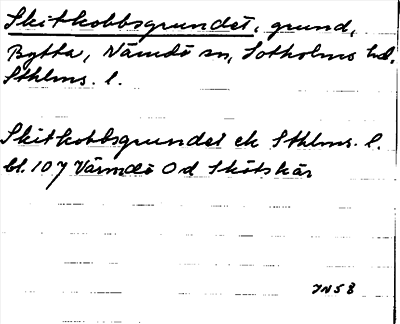 Skitkobbsgrundet, grund,
Bytta, Nämdö sn, Sotholms hd,
Sthlms. l.
Skitkobbsgrundet ek Sthlms. l.
bl. 107 Värmdö Od Skötskär
JN58